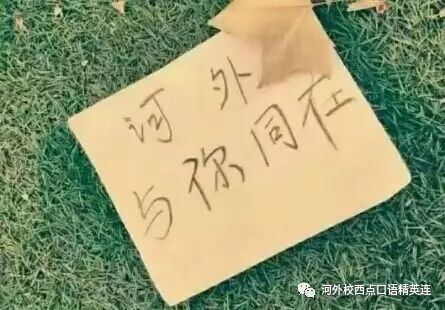 河外
与你同在
河外校西点口语精英连